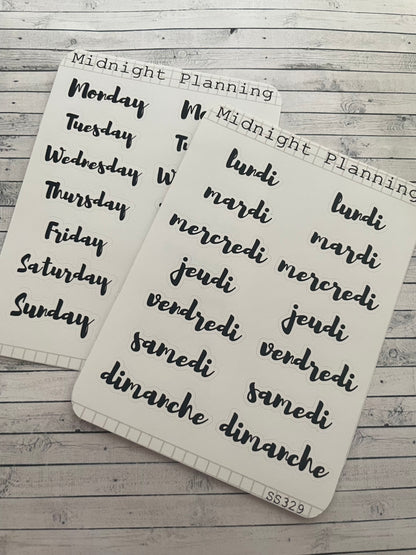 Midnight Planning
Monday
Tuesday
Wednesday
Thursday
Friday
Saturday
Sunday
Midnight Planning
lundi lundi
mardi mardi
mercredi mercredi
jeudi jeudi
vendredi vendredi
samedi samedi
dimanche dimanche
SS329